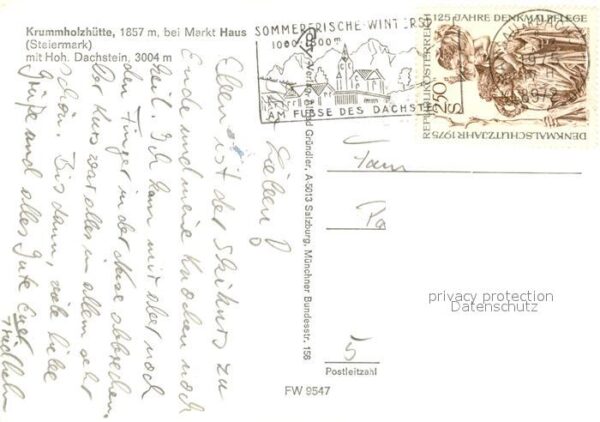 Krummholzhütte, 1857 m, bei Markt Haus
(Steiermark)
mit Hoh. Dachstein, 3004 m
SOMMERFRISCHE-WINTERSP
AM FUSSE DES DACHSTEIN
125 JAHRE DENKMALPFLEGE
REPUBLIK ÖSTERREICH
S 2.50
DENKMALSCHUTZJAHR 1975
Gründler, A-5013 Salzburg, Münchner Bundesstr. 156
Eben ist der Skikurs zu
Ende und meine Knochen noch
heil. Ich kann mir aber noch
den Finger in der Nase abbrechen.
Der Kurs war alles in allem sehr
schön. Bis dann, viele liebe
Grüße und alles Gute Euer
Friedhelm
Fam
privacy protection
Datenschutz
5
Postleitzahl
FW 9547